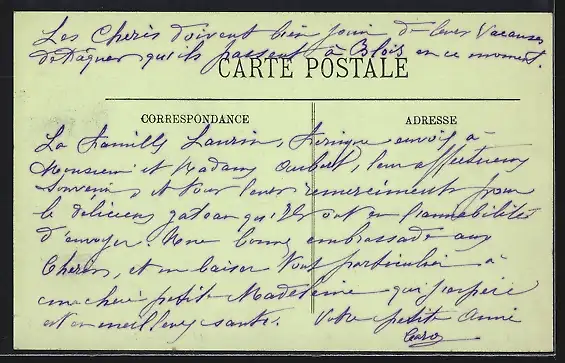 Les Chéris doivent bien jouir de leurs Vacances
de Pâques qu'ils passent à Blois en ce moment.
CARTE POSTALE
CORRESPONDANCE
ADRESSE
La famille Laurin, envoie à
Monsieur et Madame Aubert, leur affectueux
souvenir et tous leurs remerciements pour
le délicieux gateau qu'ils ont eu l'amabilité
d'envoyer. Une bonne embrassade aux
Chéris, et un baiser tout particulier à
ma chère petite Madeleine que j'espère
est en meilleure santé. Votre petite amie